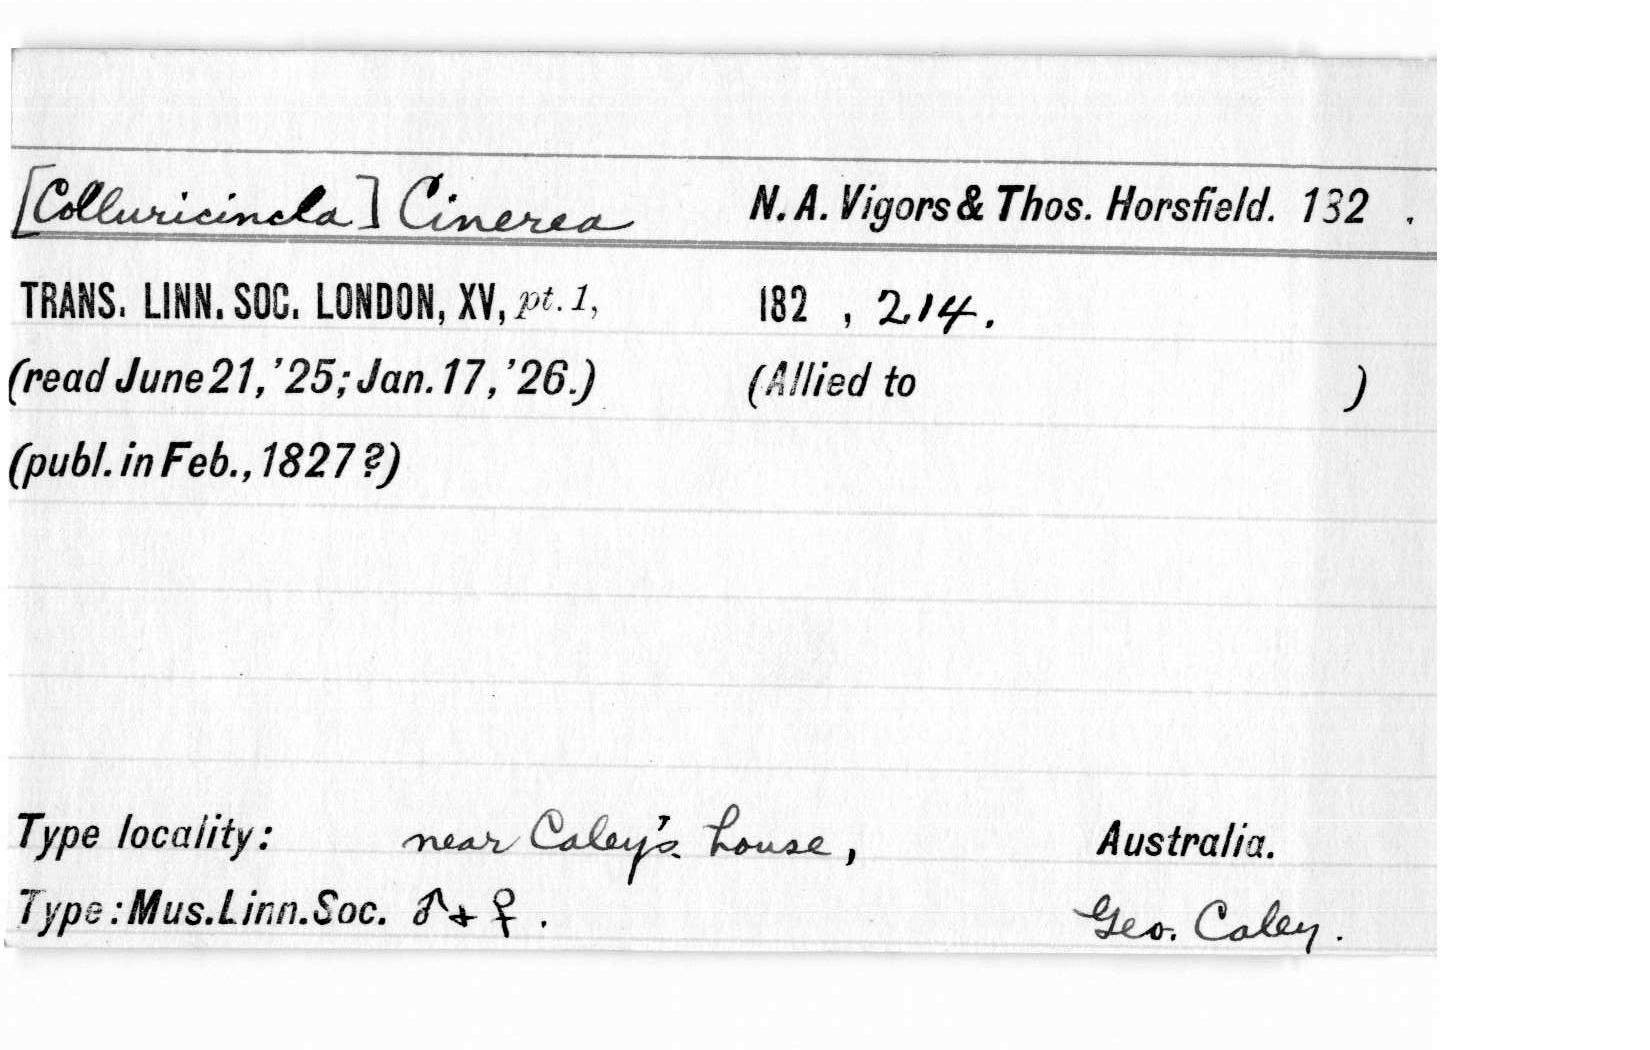 [Colluricincla] Cinerea N. A. Vigors & Thos. Horsfield. 132 .
TRANS. LINN. SOC. LONDON, XV, pt. 1, 182 , 214.
(read June 21, '25; Jan. 17, '26.) (Allied to )
(publ. in Feb., 1827 ?)
Type locality: near Caley's house, Australia.
Type: Mus. Linn. Soc. ♂ + ♀ . Geo. Caley.